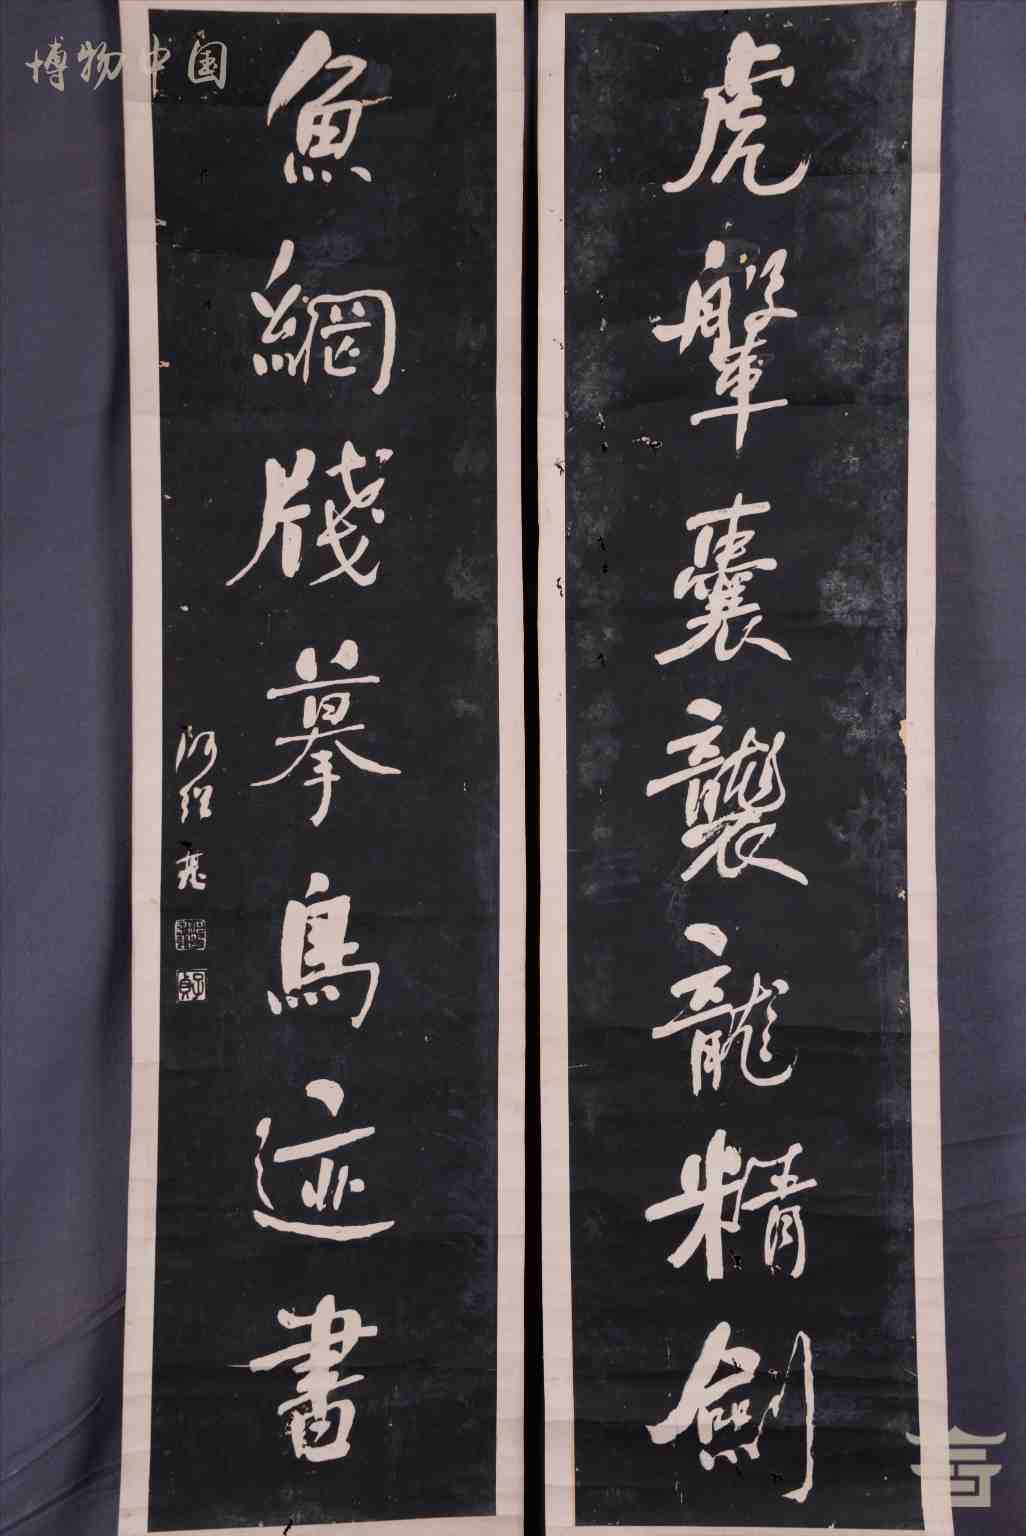 虎鞶囊襲龍精劍
魚網牋摹鳥迹書
何紹基
博物中国